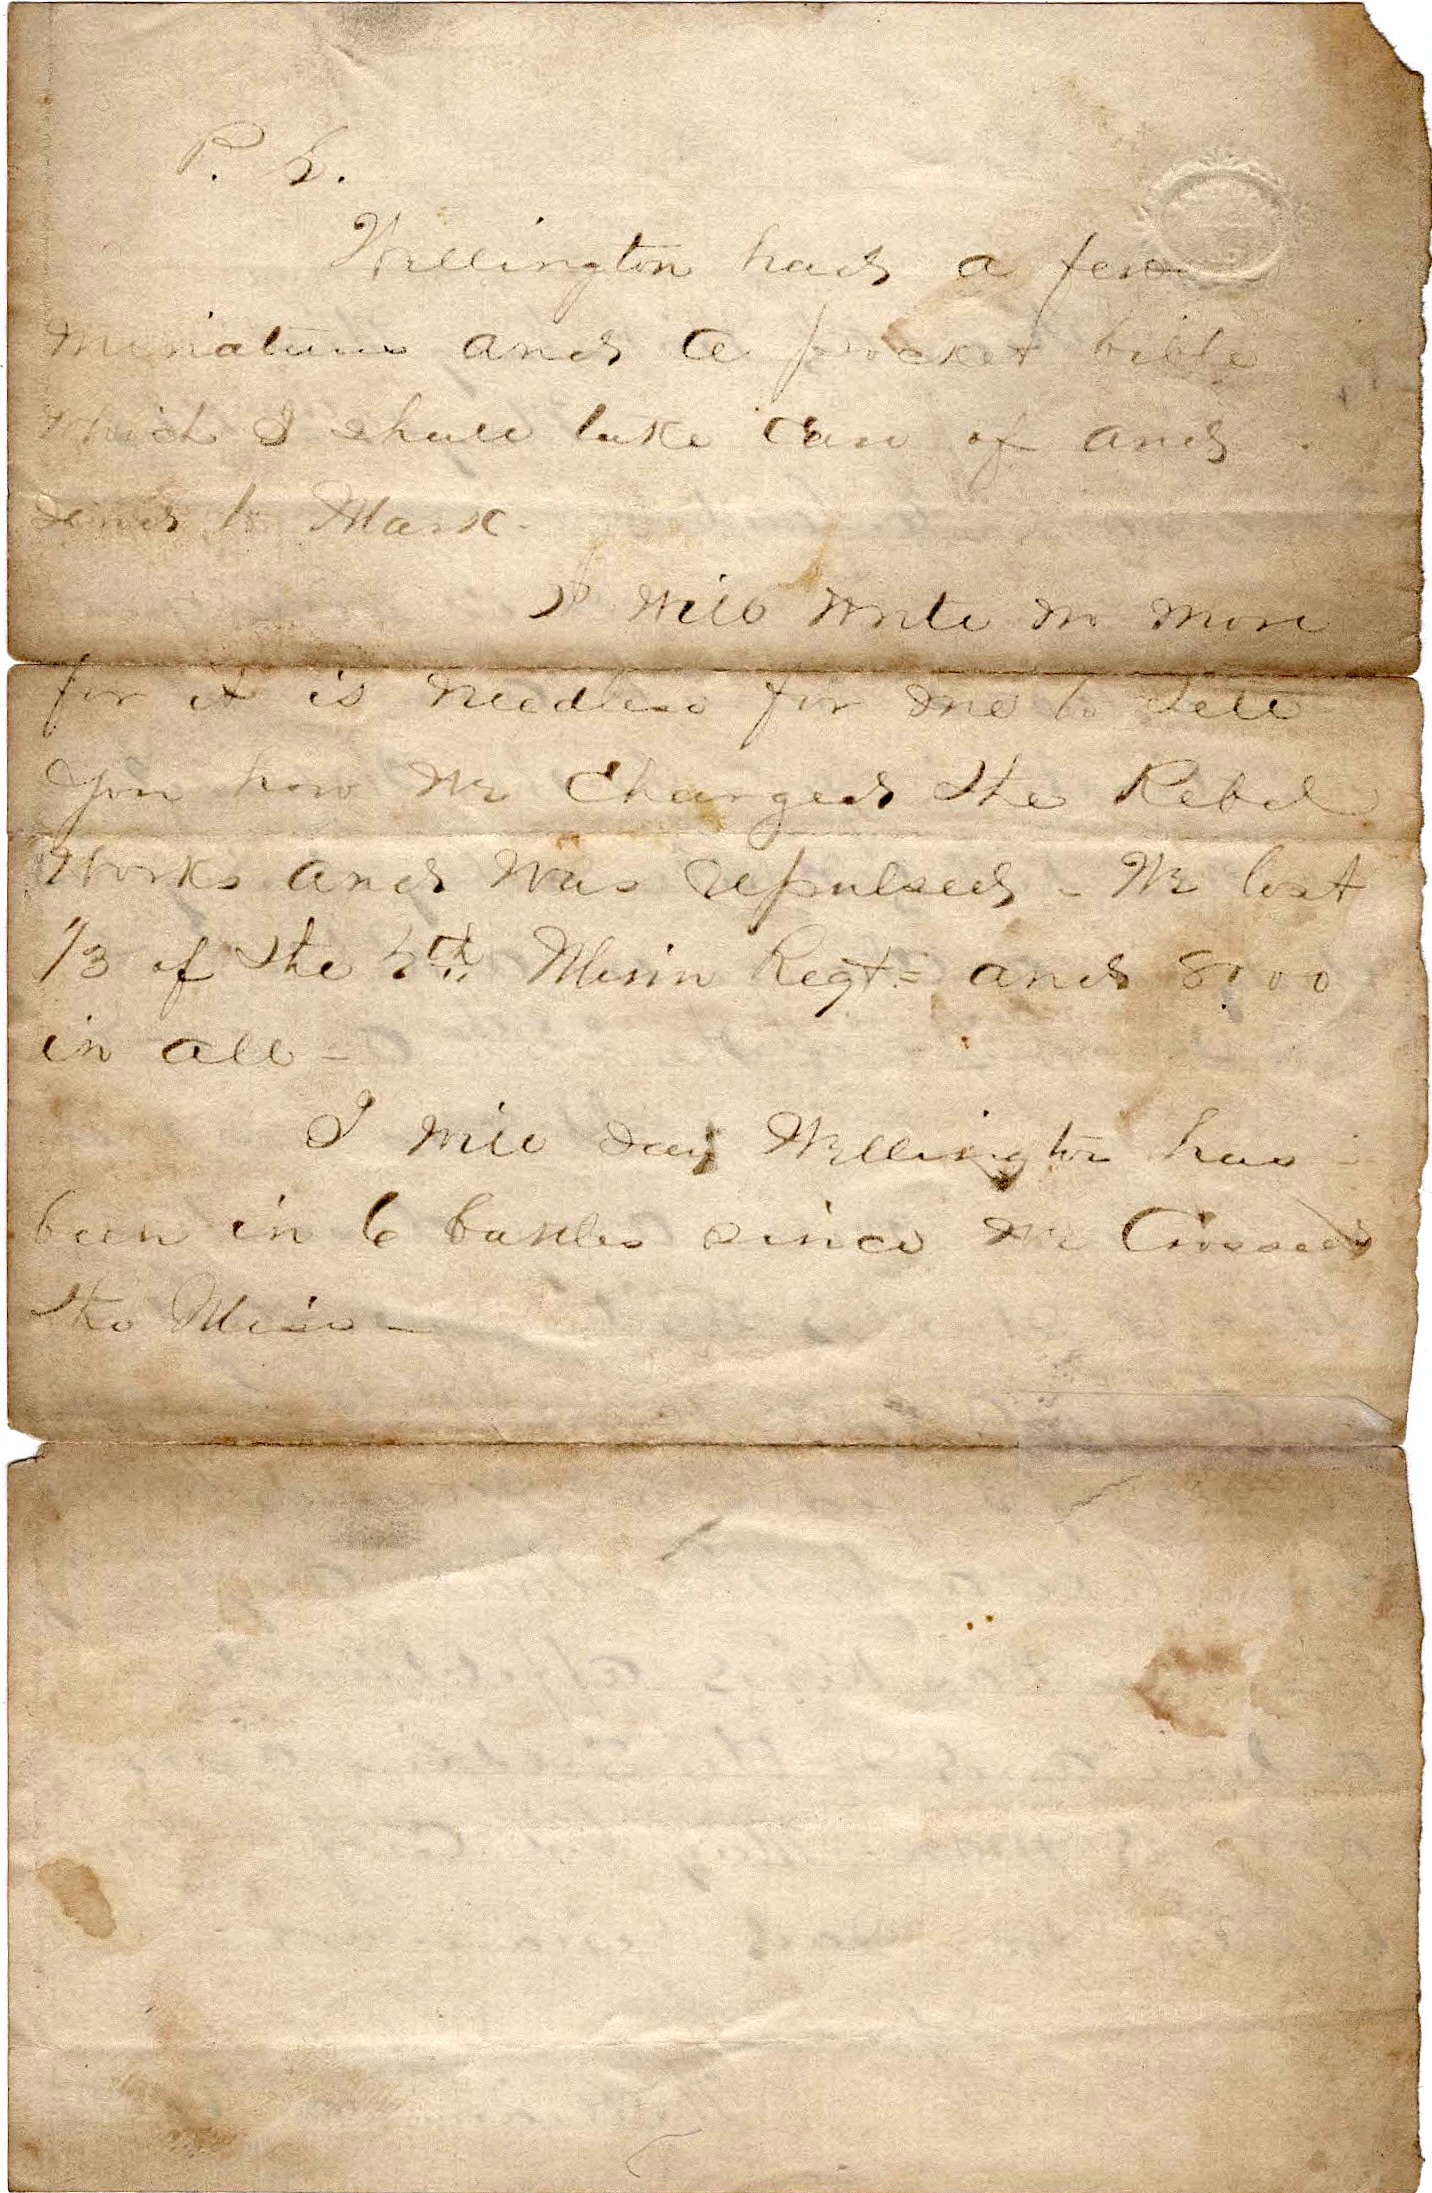 P. S.
Wellington had a few
miniatures and a pocket bible
which I shall take care of and
send to Mark.
I will write no more
for it is needless for me to tell
you how we charged the Rebel
works and was repulsed - We lost
1/3 of the 4th Minn Regt = and 8000
in all -
I will say Wellington has
been in 6 battles since we Crossed
the Miss -